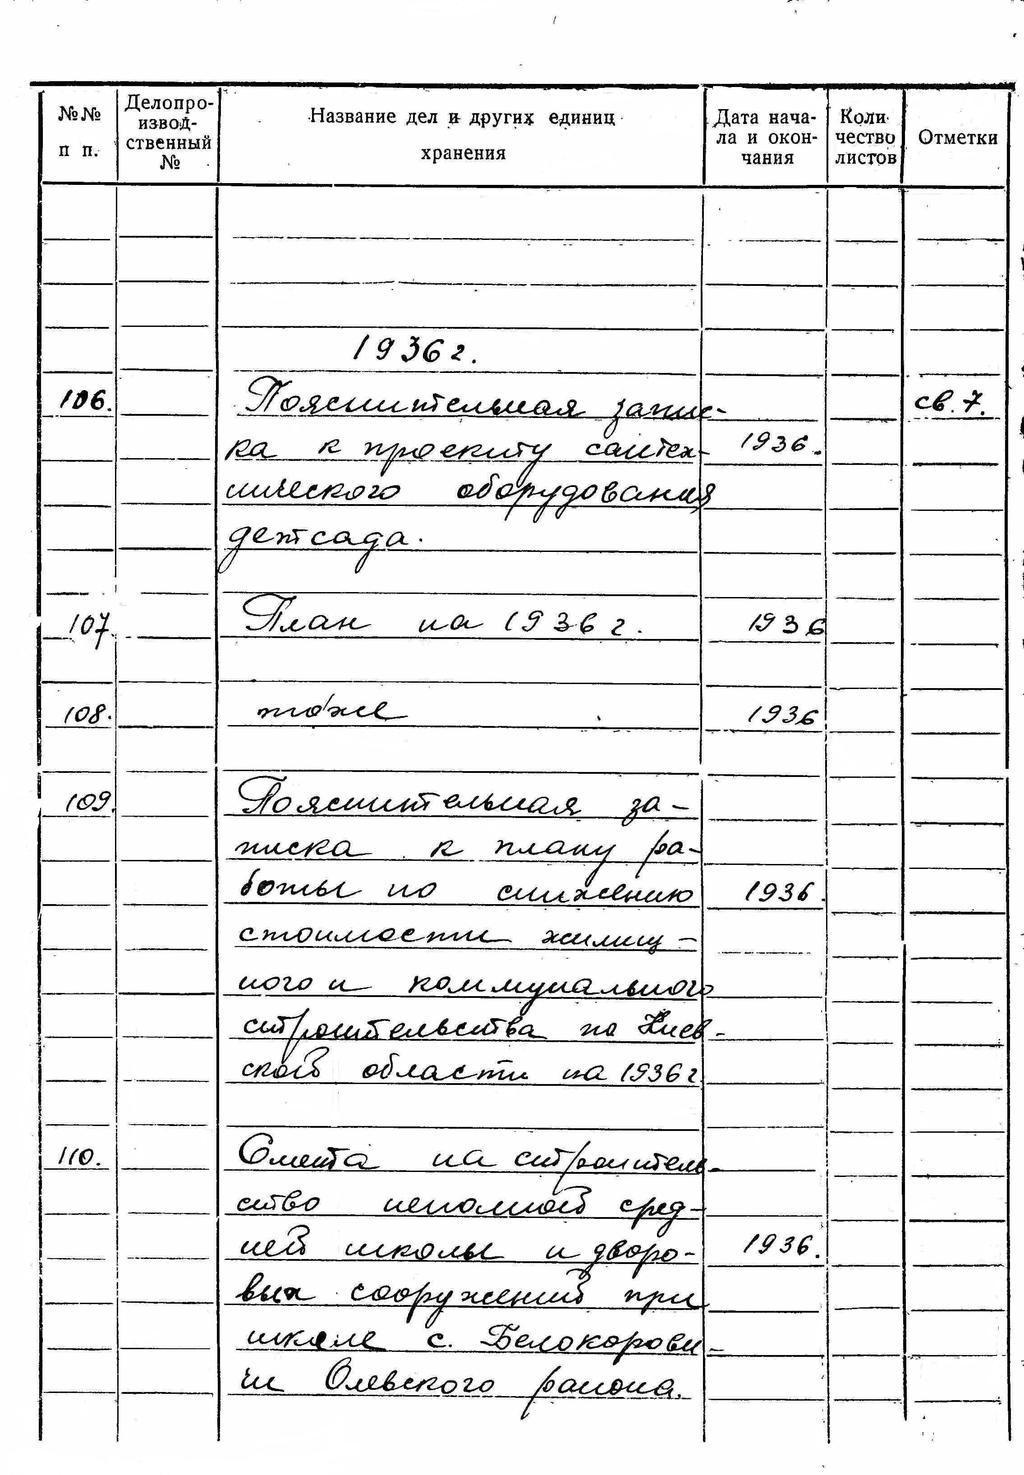 №№ п п.
Делопро-
извод-
ственный
№
Название дел и других единиц
хранения
Дата нача-
ла и окон-
чания
Коли
чество
листов
Отметки
1936 г.
106. Пояснительная запис- св. 7.
ка к проекту сантех- 1936.
нического оборудования
детсада.
107. План на 1936 г. 1936
108. тоже 1936
109. Пояснительная за-
писка к плану ра-
боты по снижению 1936.
стоимости жилищ-
ного и коммунального
строительства по Киев-
ской области на 1936 г
110. Смета на строитель-
ство неполной сред-
ней школы и дворо- 1936.
вых сооружений при
школе с. Белокорови-
чи Олевского района.